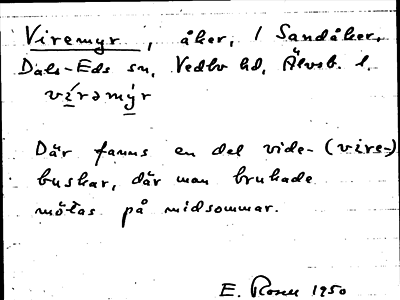 Viremyr, åker, / Sandåker,
Dals-Eds sn, Vedbo hd, Älvsb. l.
vírəmy̌r
Där fanns en del vide- (vire-)
buskar, där man brukade
mötas på midsommar.
E. Rosell 1950